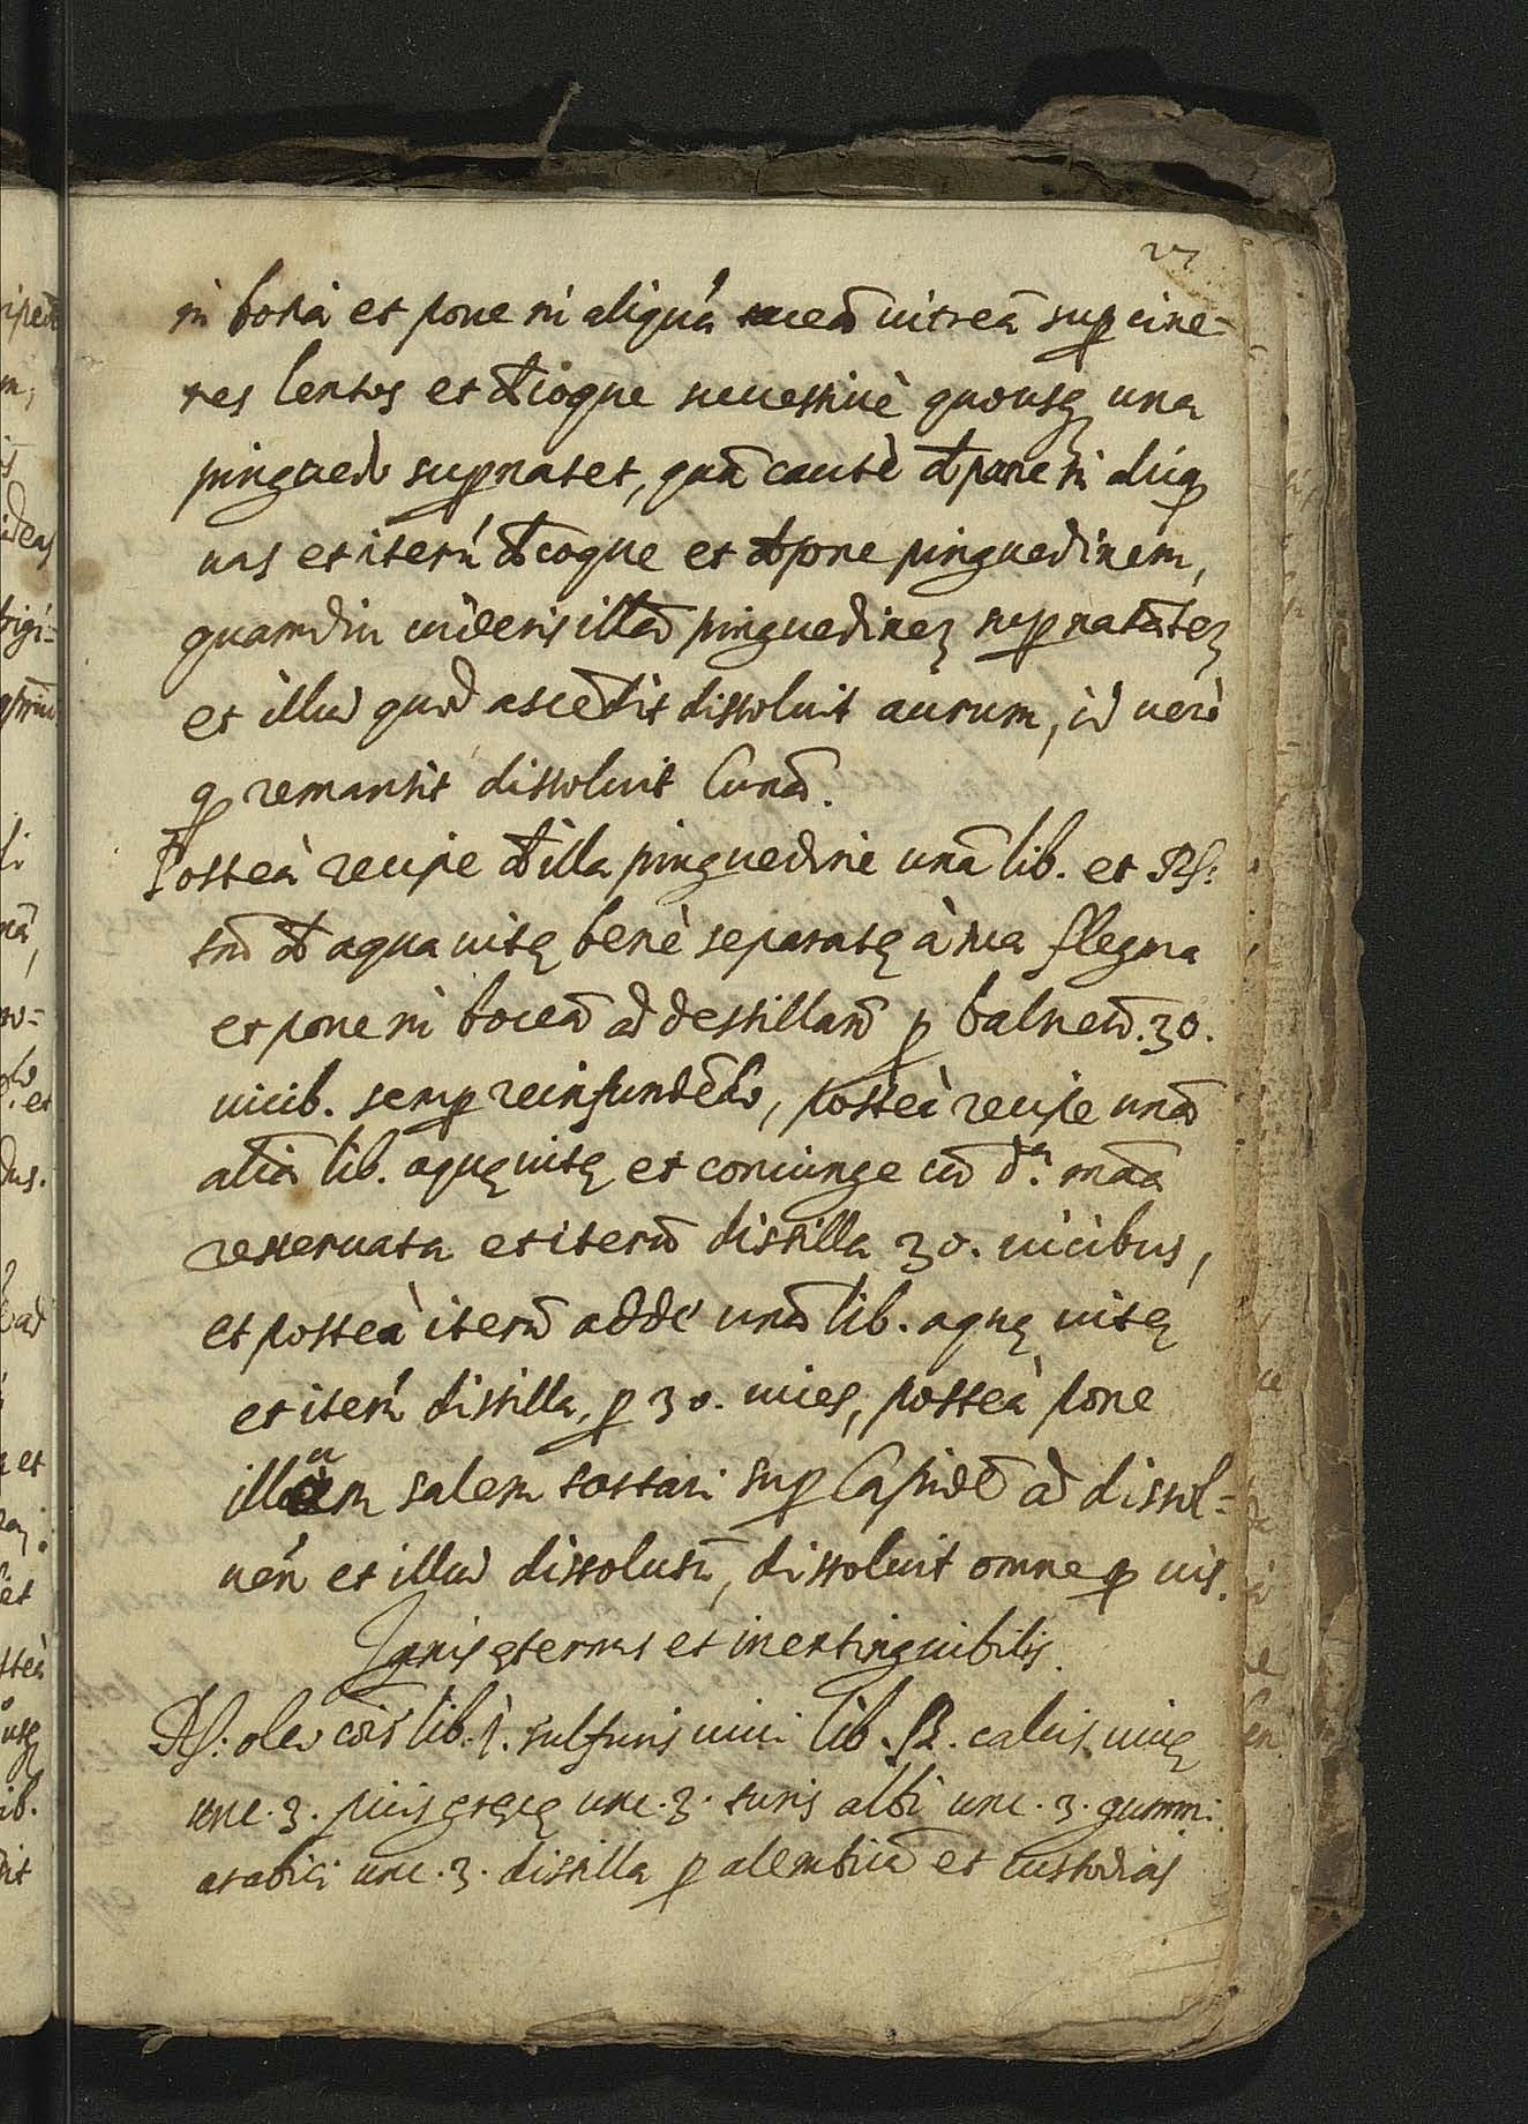 27
in botia et pone in aliquá uitreā sup cine-
res lentos et dcoque successiuè quousq una
pinguedo supnatet, quā cautè dpone in aliq
uas et iterú dcoque et dpone pinguedinem,
quamdiu uideris illā pinguedinez supnatātez
et illud quod ascēdit dissoluit aurum, id uerò
q remansit dissoluit lunā.
Posteà recipe d illa pinguedine unā lib. et ℞:
tm̄ d aqua uitę benè separatę à sua flegma
et pone in boceā ad destilland p balneū. 30.
uicib. semp reinfundēdo, posteà recipe unā
aliā lib. aquę uitę et coniunge cū dᵃ. mãa
reseruata et iterū distilla 30. uicibus,
et posteà iterū adde unā lib. aquę uitę
et iterú distilla, p 30. uices, posteà pone
illum salem tartari sup lapidē ad dissol-
uen et illud dissolutū, dissoluit omne q uis.
Ignis ęternus et inextinguibilis.
℞: oleo cōis lib. 1. sulfuris uiui lib. ß. calcis uiuę
unc. 3. picis gręcę unc. 3. turis albi unc. 3. gummi
arabici unc. 3. distilla p alembicū et custodias